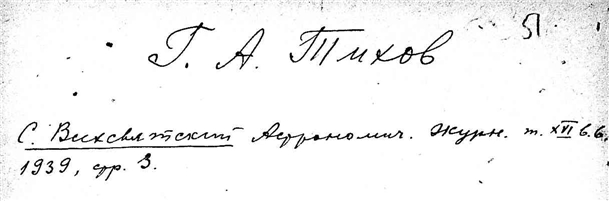 51
Г. А. Тихов
С. Всехсвятский Астрономич. журн. т. XVI в. 6,
1939, стр. 3.